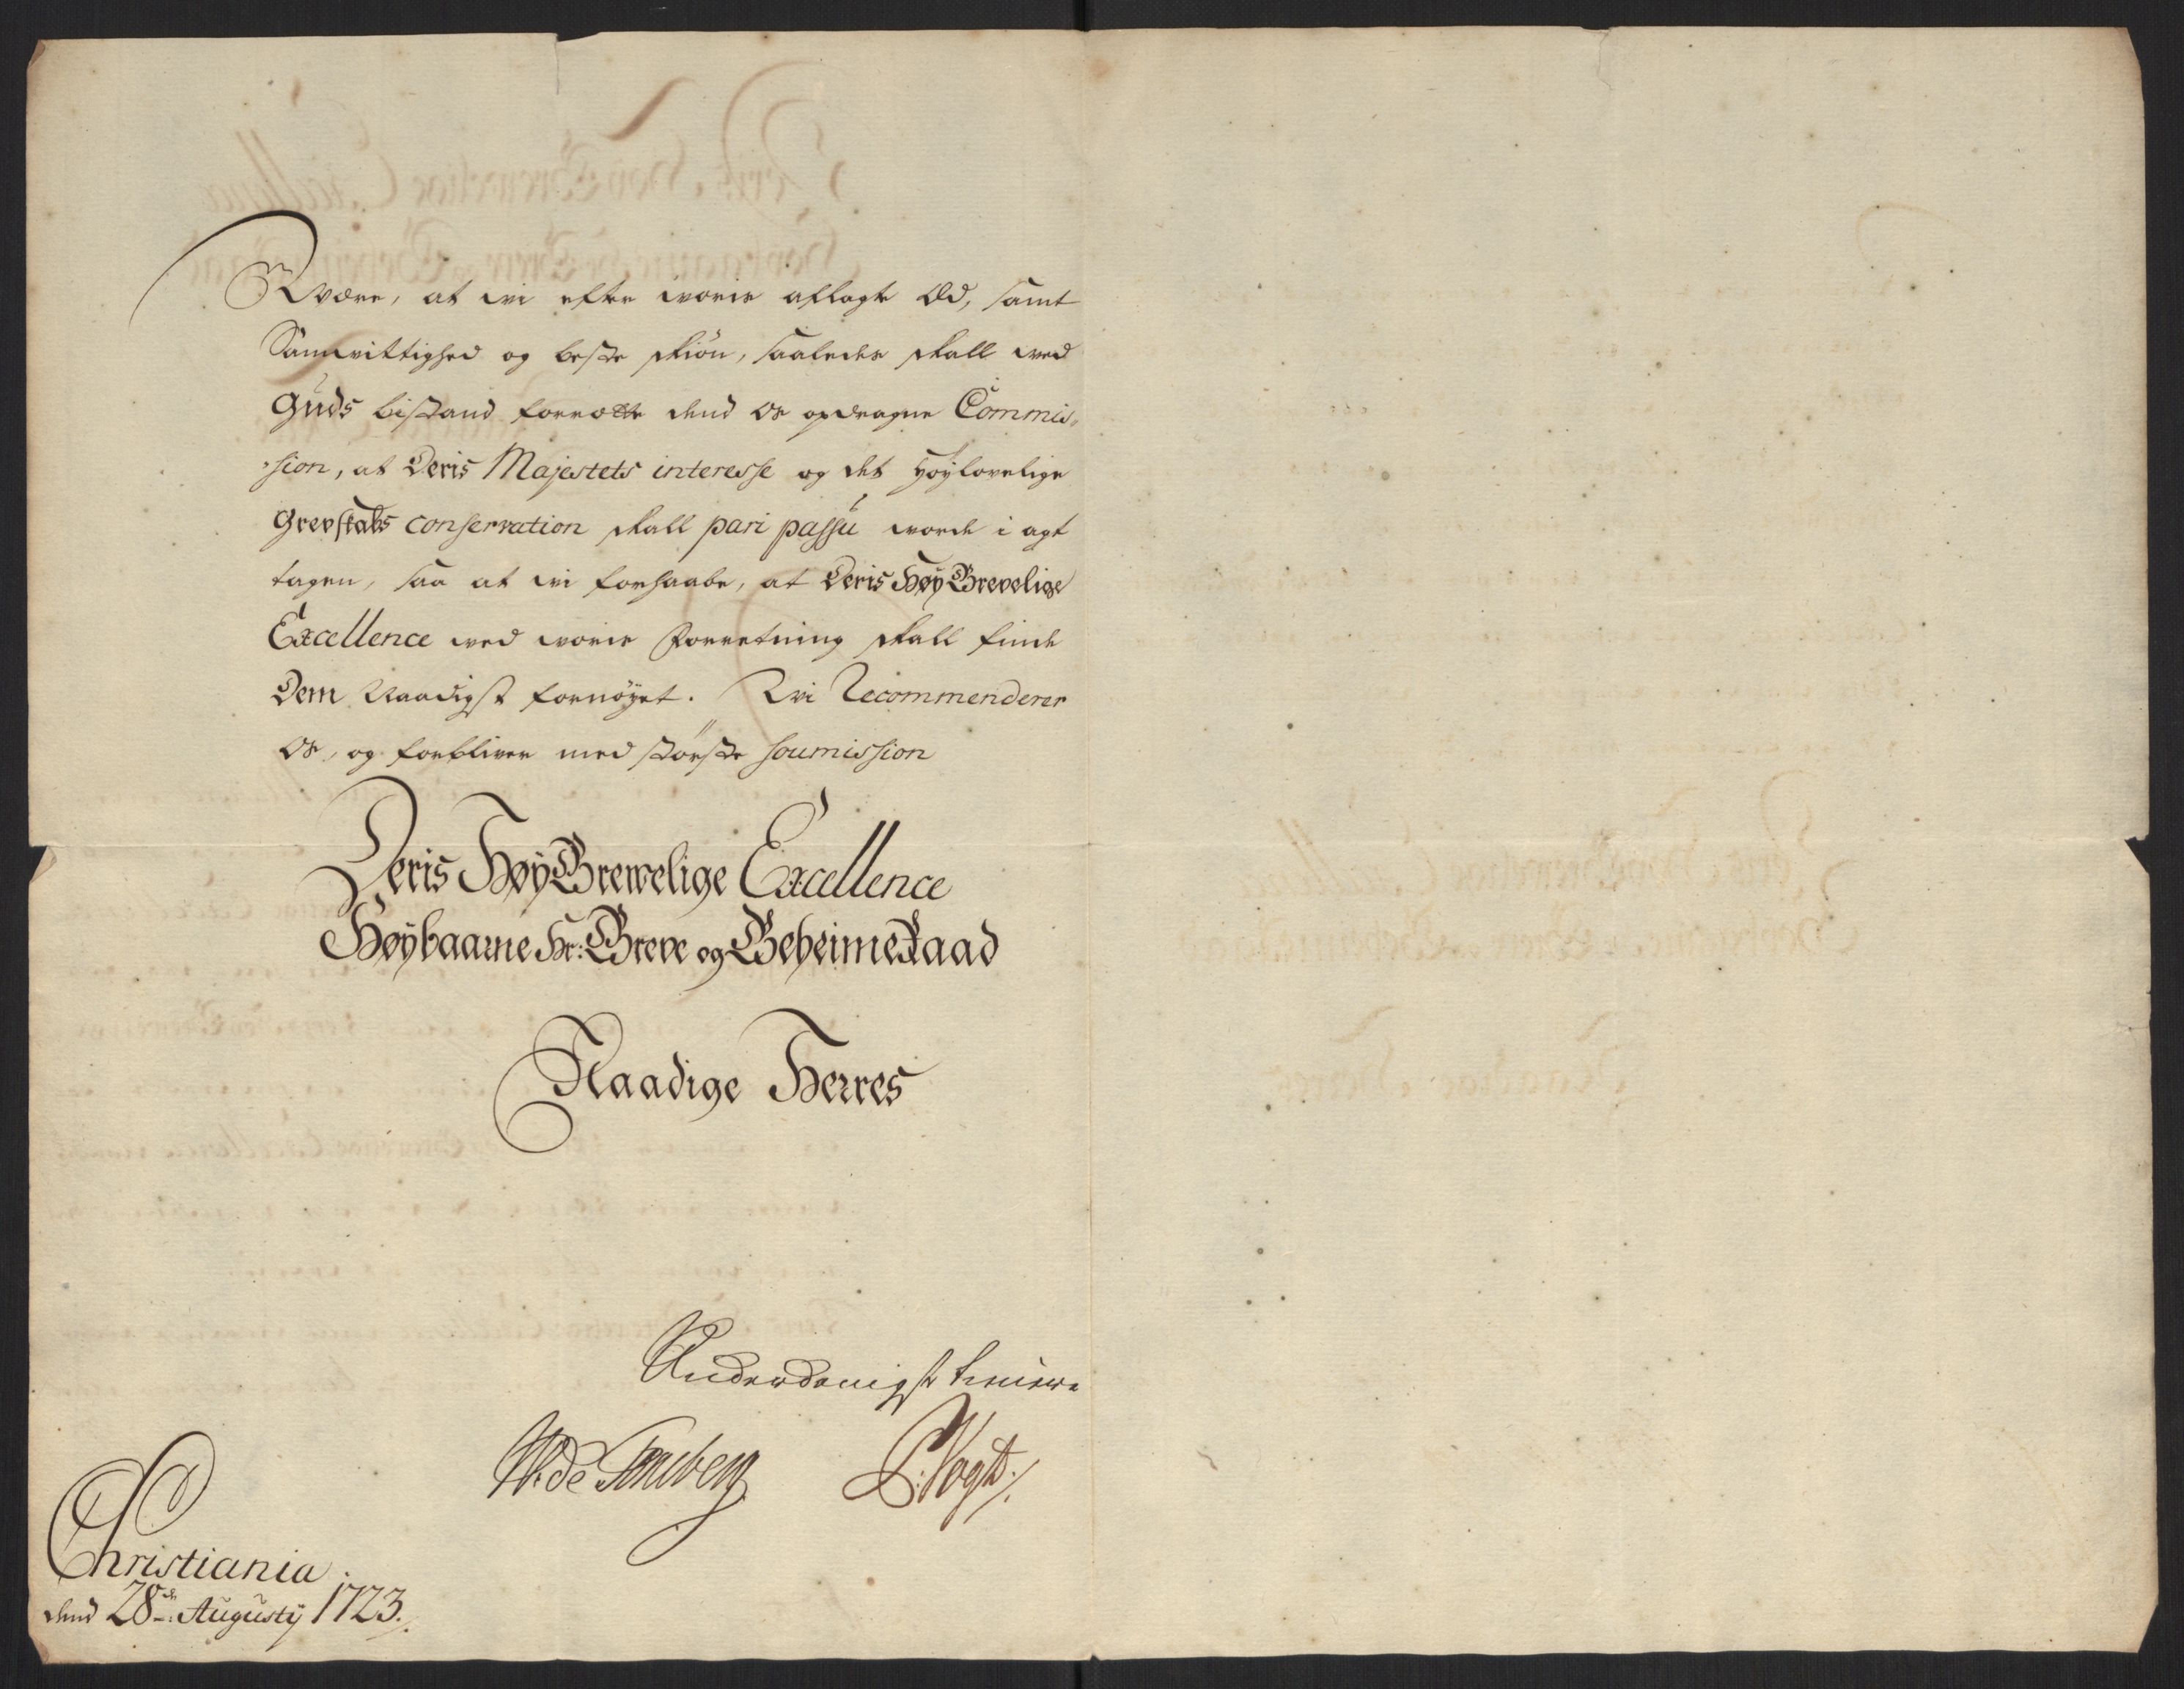 være, at wi efter woris aflagte Æd, samt
Samwittighed og beste skiøn, saaledes skall wed
Guds bistand forrætte dend os opdragne Commis-
sion, at Deris Majestets interesse og det høylovelige
Grevskabs conservation skall pari passu worde i agt
tagen, saa at wi forhaabe, at Deris Høy Grevelige
Excellence wed woris Forretning skall finde
Dem Naadigst fornøyet. Wi Recommenderer
os, og forbliver med største soumission
Deris Høy Grewelige Excellence
Høybaarne Hr: Greve og Geheime Raad
Naadige Herres
Underdanigste tienere
W. de Tonsberg L: Vogt
Christiania
dend 28de: Augustij 1723.